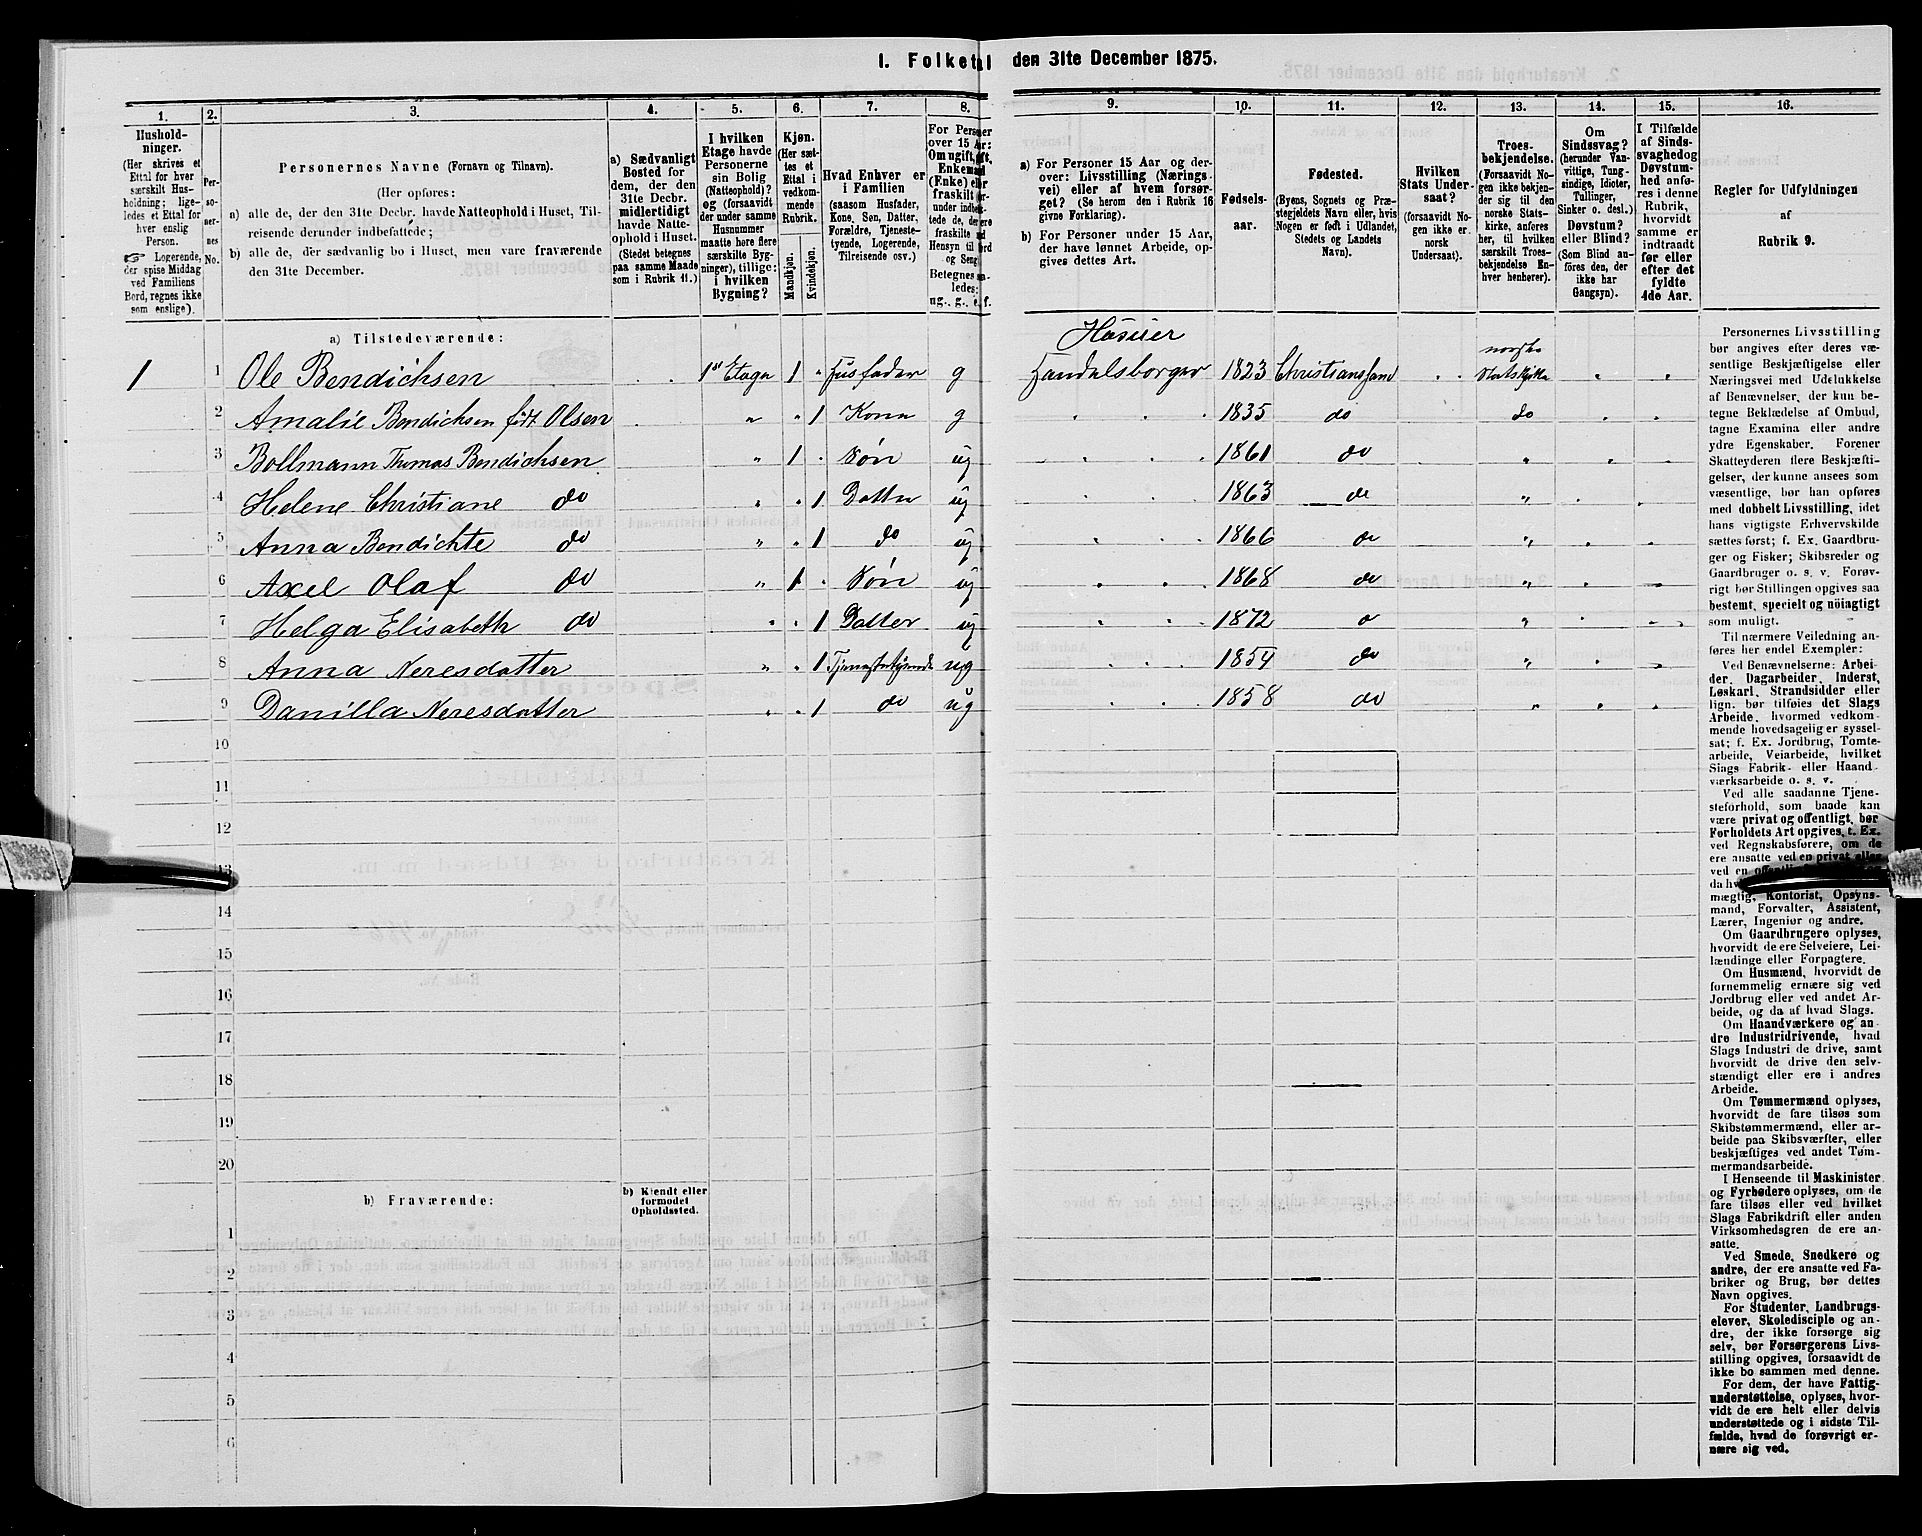 1. Folketal den 31te December 1875.
1. 2. 3. 4. 5. 6. 7. 8. 9. 10. 11. 12. 13. 14. 15. 16.
Hushold-
ninger.
(Her skrives et
Ettal for hver
særskilt Hus-
holdning; lige-
ledes et Ettal for
hver enslig
Person.
☞ Logerende,
der spise Middag
ved Familiens
Bord, regnes ikke
som enslige).
Per-
so-
ner-
nes
No.
Personernes Navne (Fornavn og Tilnavn).
(Her opføres:
a) alle de, der den 31te Decbr. havde Natteophold i Huset, Til-
reisende derunder indbefattede;
b) alle de, der sædvanlig bo i Huset, men vare fraværende
den 31te December.
a) Sædvanligt
Bosted for
dem, der den
31te Decbr.
midlertidigt
havde Natte-
ophold i Huset.
(Stedet betegnes
paa samme Maade
som i Rubrik 11.)
I hvilken
Etage havde
Personerne
sin Bolig
(Natteophold)?
og (forsaavidt
der under samme
Husnummer
maatte høre flere
særskilte Byg-
ninger), tillige:
i hvilken
Bygning?
Kjøn.
(Her sæt-
tes et
Ettal i
vedkom-
mende
Rubrik.
Mandkjøn.
Kvindekjøn.
Hvad Enhver er
i Familien
(saasom Husfader,
Kone, Søn, Datter,
Forældre, Tjeneste-
tyende, Logerende,
Tilreisende osv.)
For Personer
over 15 Aar:
Om ugift, gift,
Enkemand
(Enke) eller
fraskilt
Betegnes
ledes:
ug., g., e., f.
a) For Personer 15 Aar og der-
over: Livsstilling (Nærings-
vei) eller af hvem forsør-
get? (Se herom den i Rubrik 16
givne Forklaring).
b) For Personer under 15 Aar,
der have lønnet Arbeide, op-
gives dettes Art.
Fødsels-
aar.
Fødested.
(Byens, Sognets og Præ-
stegjeldets Navn eller, hvis
Nogen er født i Udlandet,
Stedets og Landets
Navn).
Hvilken
Stats Under-
saat?
(forsaavidt No-
gen ikke er
norsk
Undersaat).
Troes-
bekjendelse.
(Forsaavidt No-
gen ikke bekjen-
der sig til den
norske Stats-
kirke, anføres
her, til hvilken
særskilt Troes-
bekjendelse En-
hver henhører).
Om
Sindssvag?
(herunder Van-
vittige, Tung-
sindige, Idioter,
Tullinger,
Sinker o. desl.)
Døvstum?
eller Blind?
(Som Blind an-
føres den, der
ikke har
Gangsyn).
I Tilfælde
af Sinds-
svaghed og
Døvstum-
hed anfø-
res i denne
Rubrik,
hvorvidt
samme er
indtraadt
før eller
efter det
fyldte
4de Aar.
Regler for Udfyldningen
af
Rubrik 9.
a) Tilstedeværende:
Hæsuer
1 1 Ole Bendichsen 1st Etage 1 Husfader g Handelsborger 1823 Christianssand norske Statskirke
2 Amalie Bendichsen født Olsen " 1 Kone g 1835 do do
3 Bollmann Thomas Bendichsen " 1 Søn ug 1861 do "
4 Helene Christiane do " 1 Datter ug 1863 do "
5 Anna Bendichte do " 1 do ug 1866 do "
6 Axel Olaf do " 1 Søn ug 1868 do "
7 Helga Elisabeth do " 1 Datter ug 1872 "
8 Anna Neresdatter " 1 Tjenestetyende ug 1854 do "
9 Danilla Neresdatter " 1 do ug 1858 do
10
11
12
13
14
15
16
17
18
19
20
b) Fraværende:
b) Kjendt eller
formodet
Opholdssted.
1
2
3
4
5
6
Personernes Livsstilling
bør angives efter deres væ-
sentlige Beskjæftigelse eller
Næringsvei med Udelukkelse
af Benævnelser, der kun be-
tegne Beklædelse af Ombud,
tagne Examina eller andre
ydre Egenskaber. Forener
Skatteyderen flere Beskjæfti-
gelser, der kunne ansees som
væsentlige, bør han opføres
med dobbelt Livsstilling, idet
hans vigtigste Erhvervskilde
sættes først; f. Ex. Gaardbru-
ger og Fisker; Skibsreder og
Gaardbruger o. s. v. Forøv-
rigt bør Stillingen opgives saa
bestemt, specielt og nöiagtigt
som muligt.
Til nærmere Veiledning an-
føres her endel Exempler:
Ved Benævnelserne: Arbei-
der, Dagarbeider, Inderst,
Løskarl, Strandsidder eller
lign. bør tilføies det Slags
Arbeide, hvormed vedkom-
mende hovedsagelig er syssel-
sat; f. Ex. Jordbrug, Tomte-
arbeide, Veiarbeide, hvilket
Slags Fabrik- eller Haand-
værksarbeide o. s. v.
Ved alle saadanne Tjene-
steforhold, som baade kan
være privat og offentligt, bør
Forholdets Art opgives, t. Ex.
ved Regnskabsførere, om de
ere ansatte ved en privat eller
ved en
mægtig, Kontorist, Opsyns-
mand, Forvalter, Assistent,
Lærer, Ingeniør og andre.
Om Gaardbrugere oplyses,
hvorvidt de ere Selveiere, Lei-
lændinge eller Forpagtere.
Om Husmænd, hvorvidt de
fornemmelig ernære sig ved
Jordbrug eller ved andet Ar-
beide, og da af hvad Slags.
Om Haandværkere og an-
dre Industridrivende, hvad
Slags Industri de drive, samt
hvorvidt de drive den selv-
stændigt eller ere i andres
Arbeide.
Om Tømmermænd oplyses,
hvorvidt de fare tilsøs som
Skibstømmermænd, eller ar-
beide paa Skibsværfter, eller
beskjæftiges ved andet Tøm-
mermandsarbeide.
I Henseende til Maskinister
og Fyrbødere oplyses, om de
fare tilsøs eller ved hvilket
Slags Fabrikdrift eller anden
Virksomhedsgren de ere an-
satte.
Ved Smede, Snedkere og
andre, der ere ansatte ved Fa-
briker og Brug, bør dettes
Navn opgives.
For Studenter, Landbrugs-
elever, Skoledisciple og an-
dre, der ikke forsørge sig
selv, bør Forsørgerens Livs-
stilling opgives, forsaavidt de
ikke bo sammen med denne.
For dem, der have Fattig-
understøttelse, oplyses, hvor-
vidt de ere helt eller delvis
understøttede og i sidste Til-
fælde, hvad de forøvrigt er-
nære sig ved.